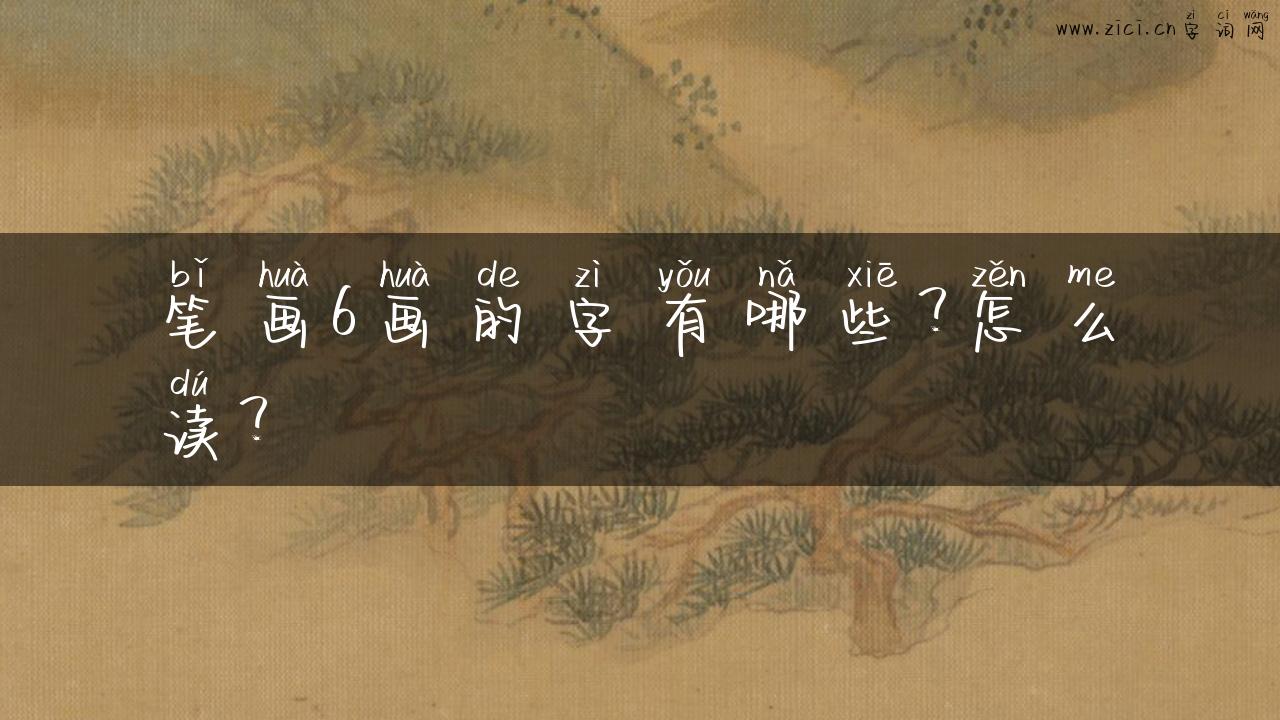 www.zici.cn
zì cí wǎng
字词网
bǐ huà huà de zì yǒu nǎ xiē zěn me
笔画6画的字有哪些？怎么
dú
读？